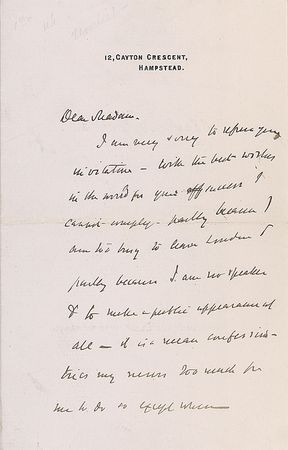 12, CAYTON CRESCENT,
HAMPSTEAD.
Dear Madam.
I am very sorry to refuse your
invitation – With the best wishes
in the world for your success I
cannot comply – partly because I
am too busy to leave London &
partly because I am no speaker
& to make a public appearance at
all – it is a mean confession –
tries my nerves too much for
me to do so except when